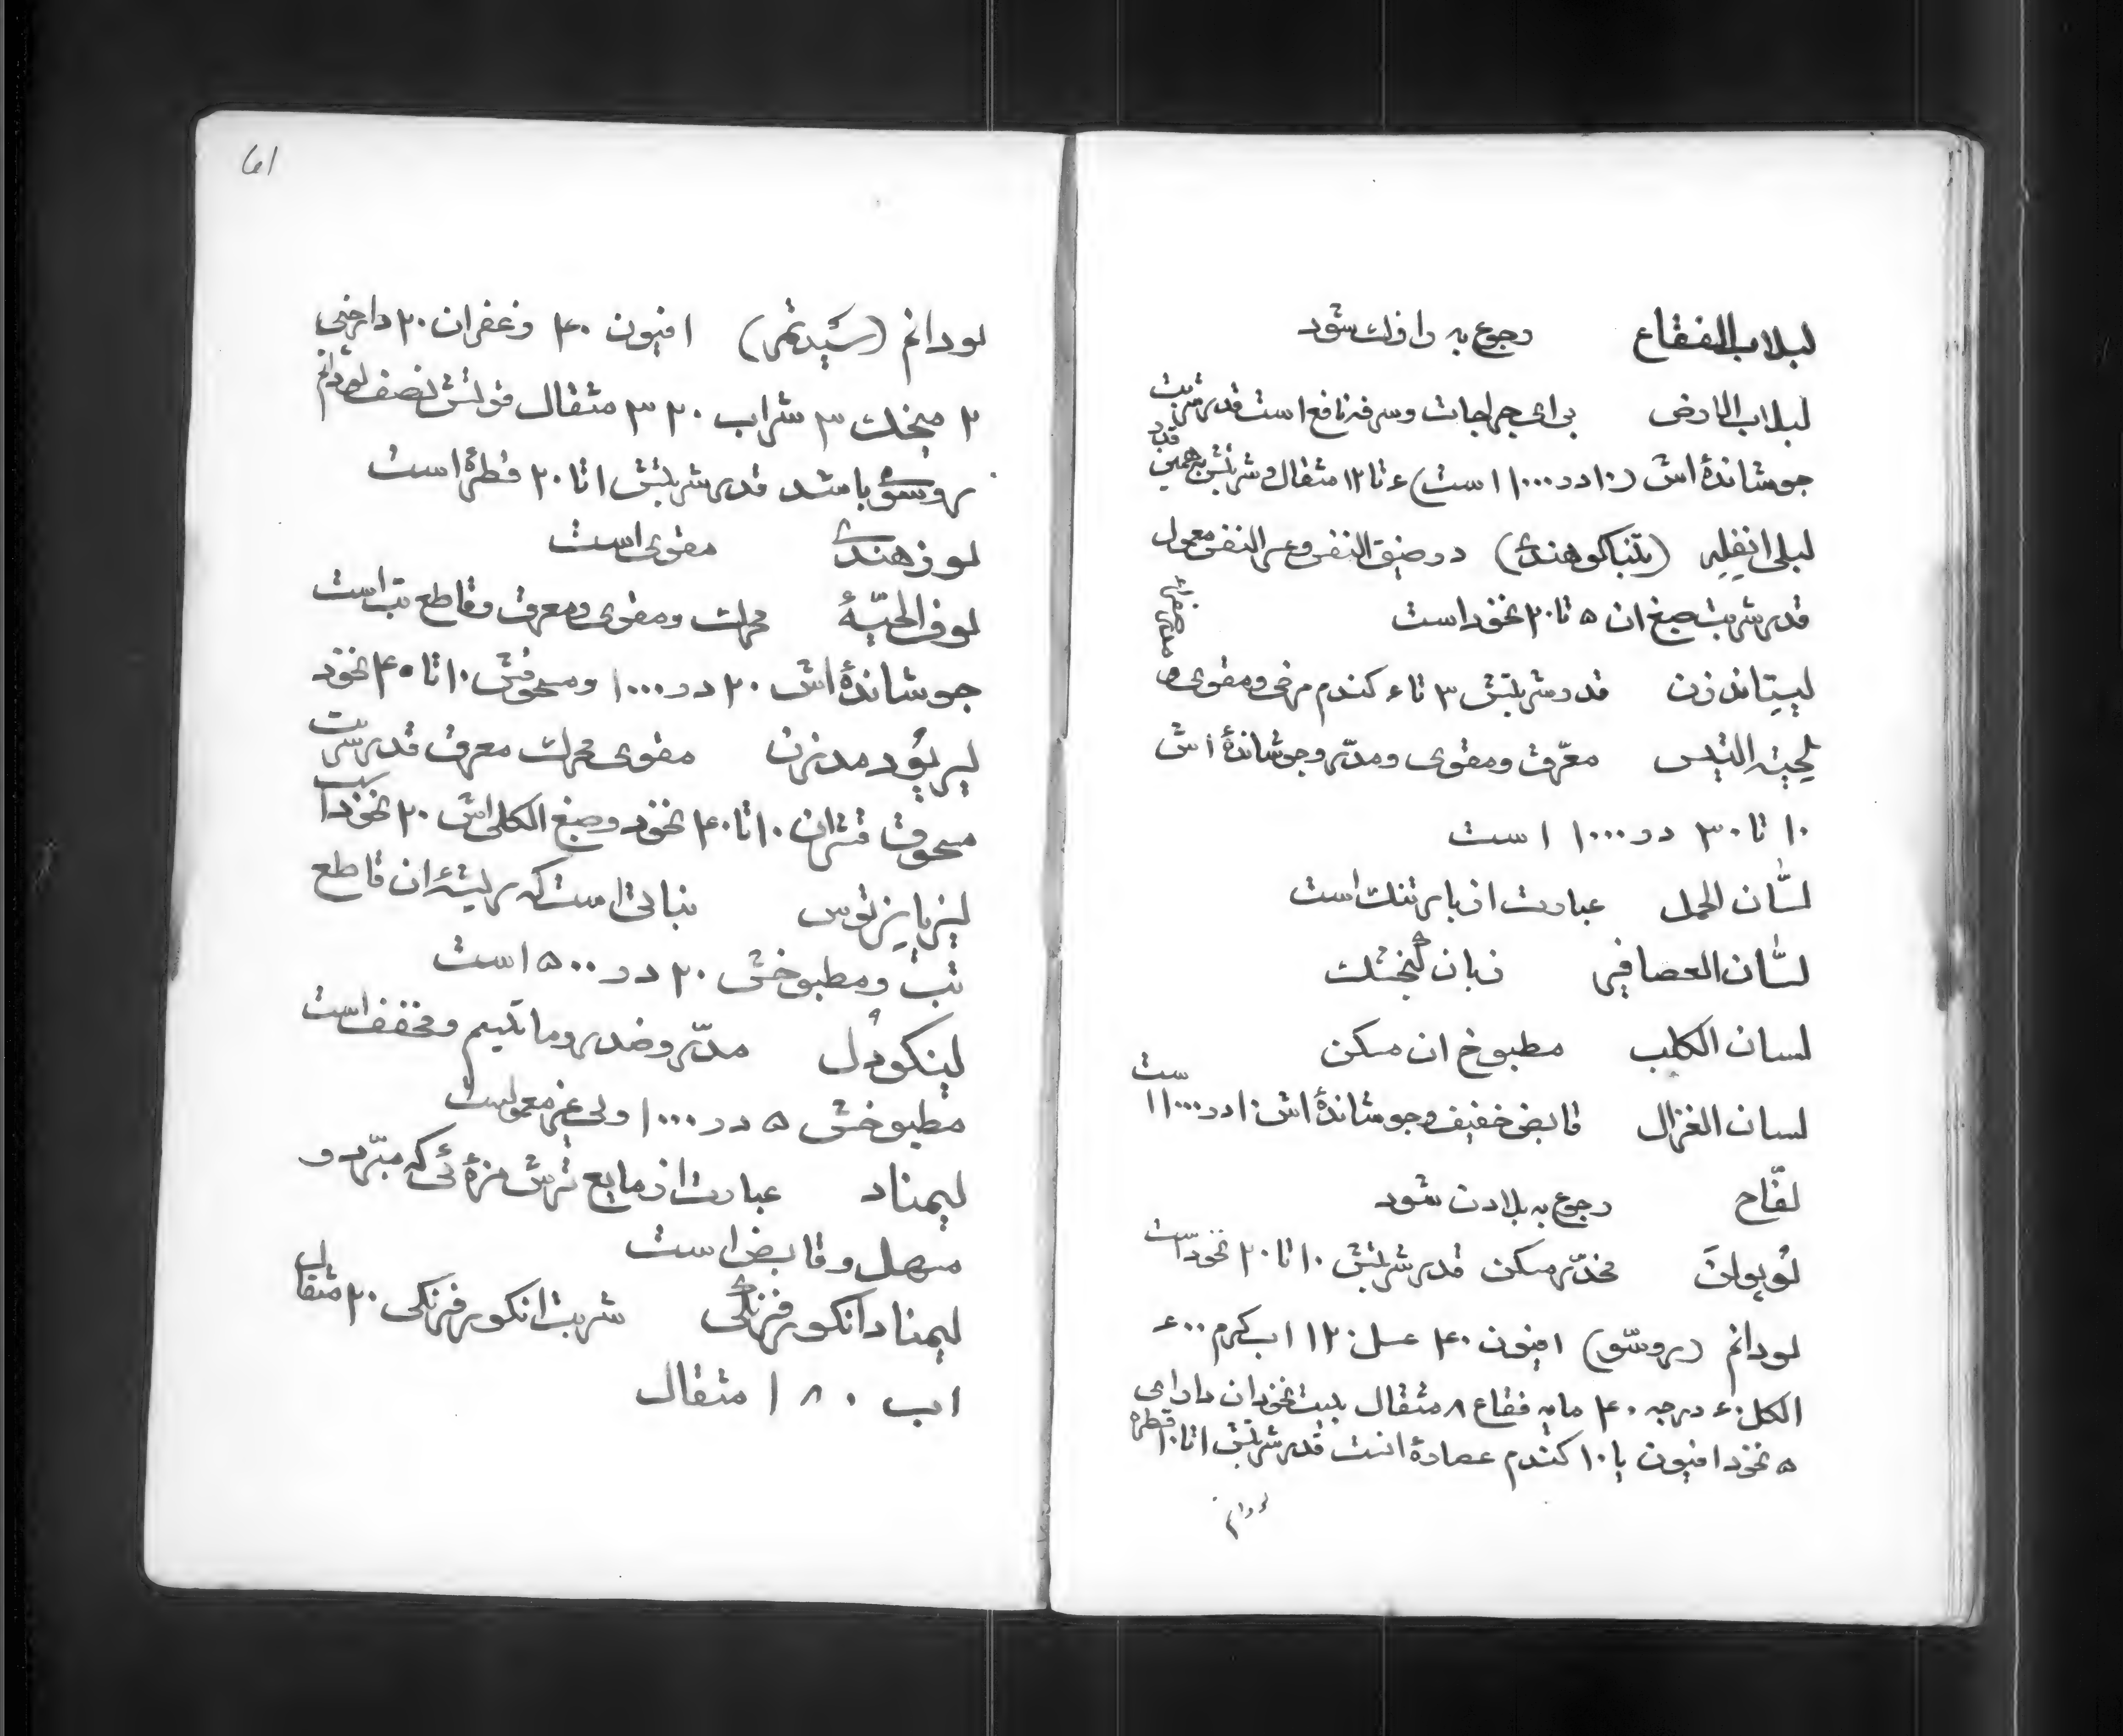 لبلاب الفقاع رجوع به رازک شود
لبلاب الارض برای جراحات و سرفه نافع است قدر شربت
جوشاندهٔ اش (۱۰ در ۱۰۰۰ است) ۶ تا ۱۲ مثقال و شربتش بهمین قدر
لبلی انفله (تنباکو هندی) در ضیق النفس و عسر النفس معمول
قدر شربت صبغ ان ۵ تا ۲۰ نخود است
لپتاندرن قدر شربتش ۳ تا ۶ کندم مرخی و مقوی و
لحیته التیس معرّق و مقوی و مدّر و جوشاندهٔ اش
۱۰ تا ۳۰ در ۱۰۰۰ است
لسّان الحمل عبارت از بارتنک است
لسّان العصافیر زبان کنجشک
لسان الکلب مطبوخ ان مسکن
لسان الغزال قابض خفیف و جوشاندهٔ اش ۱۰ در ۱۰۰۰ است
لفّاح رجوع به بلادن شود
لوپولن مخدّر مسکن قدر شربتش ۱۰ تا ۲۰ نخود است
لودانم (روسّو) افیون ۴۰ عسل ۱۲۰ اب کرم ۶۰۰
الکل ۶۰ درجه ۴۰ مایه فقاع ۸ مثقال بیست نخود ان دارای
۵ نخود افیون یا ۱۰ کندم عصارهٔ انست قدر شربتش ۱ تا ۱۰ قطره
لودانم
61
لودانم (سیدنم) افیون ۴۰ زعفران ۲۰ دارچنی
۲ میخک ۳ شراب ۳۲۰ مثقال قوتش نصف لودانم
روسّو باشد قدر شربتش ۱ تا ۲۰ قطرهٔ است
لوز هندی مقوی است
لوف الحیّهٔ محرک و مقوی و معرق و قاطع تب است
جوشاندهٔ اش ۲۰ در ۱۰۰۰ و مسحوقش ۱۰ تا ۴۰ نخود
لیریودمدرن مقوی محرک معرق قدر شربت
مسحوق قشران ۱۰ تا ۴۰ نخود و صبغ الکلی اش ۲۰ نخود است
نباتی است که ریشهٔ ان قاطع
تب و مطبوخش ۲۰ در ۵۰۰ است
لینکودل مدّر و ضد روماتیسم و مخفف است
مطبوخش ۵ در ۱۰۰۰ ولی غیر معمولست
لیمناد عبارت از مایع ترش مزهٔ ئی که مبّرد و
مسهل و قابض است
لیمناد انکور فرنکی شربت انکور فرنکی ۲۰ مثقال
اب ۱۸۰ مثقال